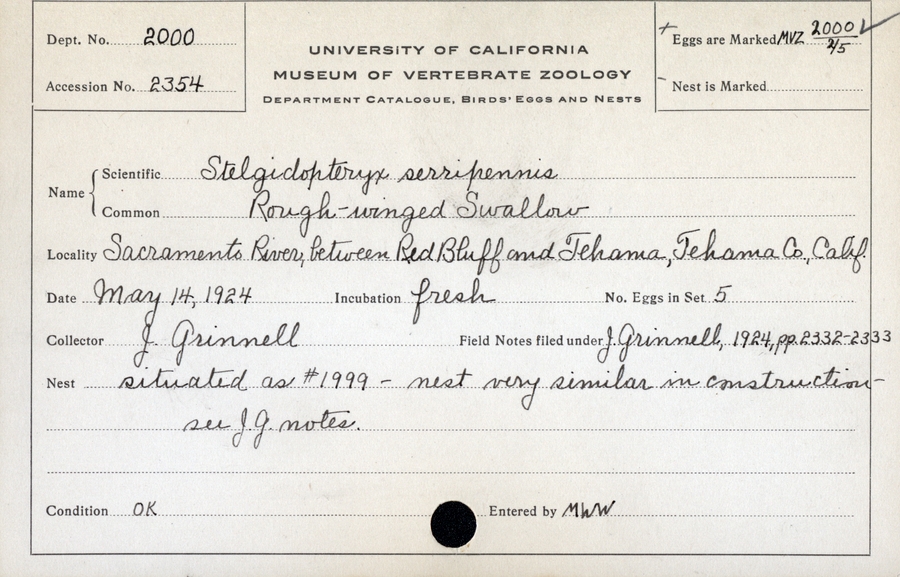 Dept. No. 2000
Accession No. 2354
UNIVERSITY OF CALIFORNIA
MUSEUM OF VERTEBRATE ZOOLOGY
DEPARTMENT CATALOGUE, BIRDS' EGGS AND NESTS
+ Eggs are Marked MVZ 2000/2/5 ✓
- Nest is Marked
Name { Scientific Stelgidopteryx serripennis
Common Rough-winged Swallow
Locality Sacramento River, between Red Bluff and Tehama, Tehama Co., Calif.
Date May 14, 1924 Incubation fresh No. Eggs in Set 5
Collector J. Grinnell Field Notes filed under J. Grinnell, 1924, pp. 2332-2333
Nest situated as #1999 - nest very similar in construction-
see J.G. notes.
Condition OK Entered by MWW